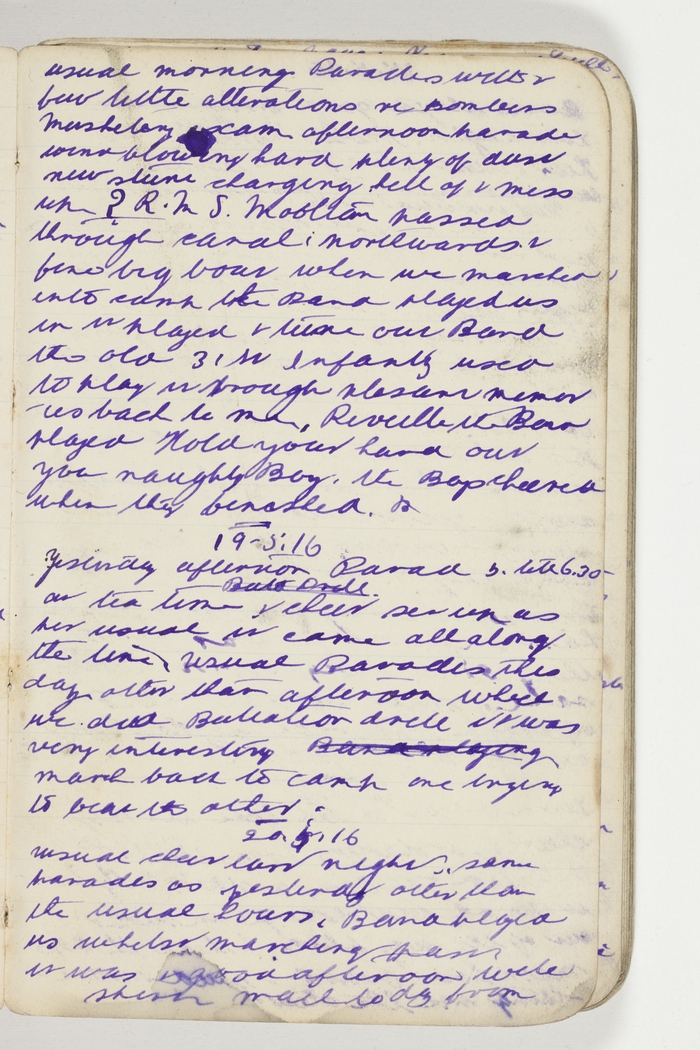 usual morning Parades with a
few little alterations re bombers
Musketery exam afternoon parade
wind blowing hard plenty of dust
new stunt charging hell of a mess
up ? R.M.S. Moultan passed
through canal northwards a
fine big boat when we marched
into camp the Band played us
in it played a tune our Band
the old 31st Infantry used
to play it brought plesant memor
ies back to me, Reveille the Band
played Hold your hand out
you naughty Boy. the Boys cheered
when they finished.
19-5-16
yesterday afternoon Parad 5. till 6.30
Batt Drill.
at tea time a cheer set up as
per usual it came all along
the line, usual Parades this
day other than afternoon while
we did Battalion drill it was
very interesting Band playing
march back to camp one trying
to beat the other.
20.5.16
usual cheer last night, same
parades as yesterday other than
the usual hours, Band played
us whilst marching past
it was a good afternoon
mail today from